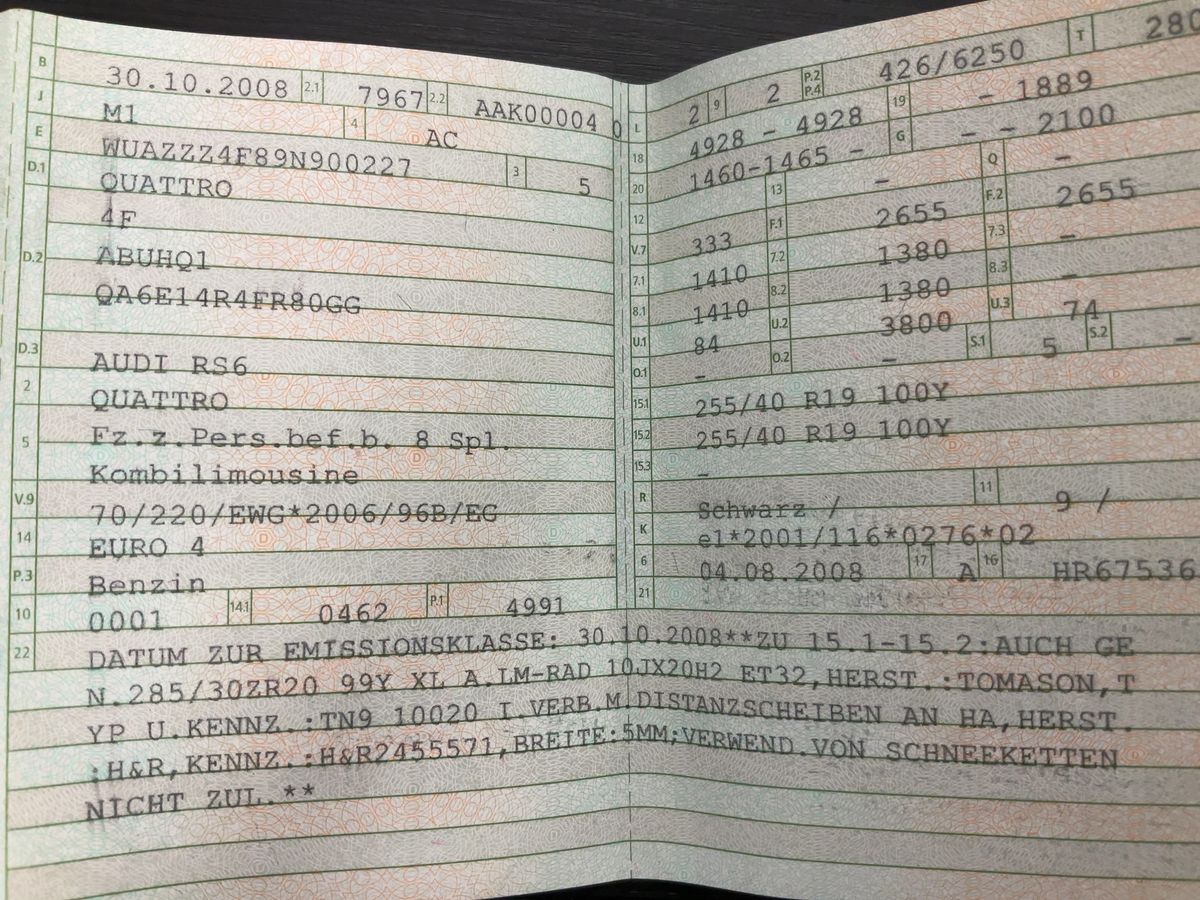 B 30.10.2008 2.1 7967 2.2 AAK00004 0
J M1 4 AC
E WUAZZZ4F89N900227 3 5
D.1 QUATTRO
4F
D.2 ABUHQ1
QA6E14R4FR80GG
D.3 AUDI RS6
2 QUATTRO
5 Fz.z.Pers.bef.b. 8 Spl.
Kombilimousine
V.9 70/220/EWG*2006/96B/EG
14 EURO 4
P.3 Benzin
10 0001 14.1 0462 P.1 4991
L 2 9 2 P.2 P.4 426/6250 T 280
18 4928 - 4928 19 - 1889
20 1460-1465 - G - - 2100
12 - 13 - Q -
V.7 333 F.1 2655 F.2 2655
7.1 1410 7.2 1380 7.3 -
8.1 1410 8.2 1380 8.3 -
U.1 84 U.2 3800 U.3 74
O.1 - O.2 - S.1 5 S.2 -
15.1 255/40 R19 100Y
15.2 255/40 R19 100Y
15.3 -
R Schwarz / 11 9 /
K e1*2001/116*0276*02
6 04.08.2008 17 A 16 HR67536
21
22 DATUM ZUR EMISSIONSKLASSE: 30.10.2008**ZU 15.1-15.2:AUCH GE
N.285/30ZR20 99Y XL A.LM-RAD 10JX20H2 ET32,HERST.:TOMASON,T
YP U.KENNZ.:TN9 10020 I.VERB.M.DISTANZSCHEIBEN AN HA,HERST.
:H&R,KENNZ.:H&R2455571,BREITE:5MM;VERWEND.VON SCHNEEKETTEN
NICHT ZUL.**